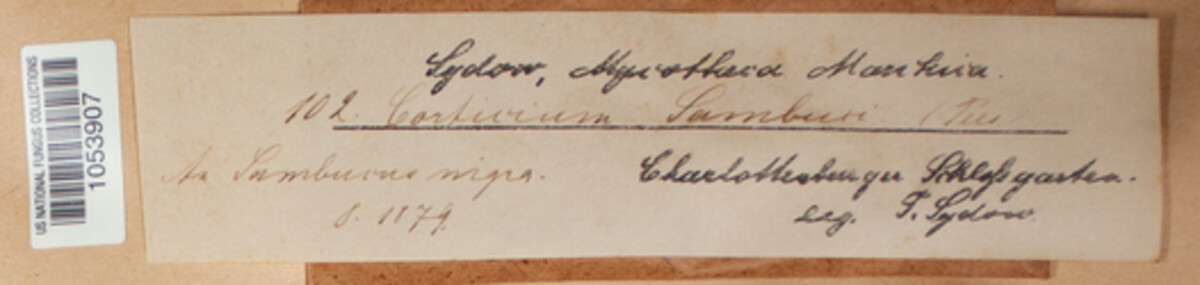 US NATIONAL FUNGUS COLLECTIONS
1053907
Sydow, Mycotheca Marchica.
102. Corticium Sambuci (Pers)
An Sambucus nigra. Charlottenburger Schloßgarten.
8. 1879. leg. P. Sydow